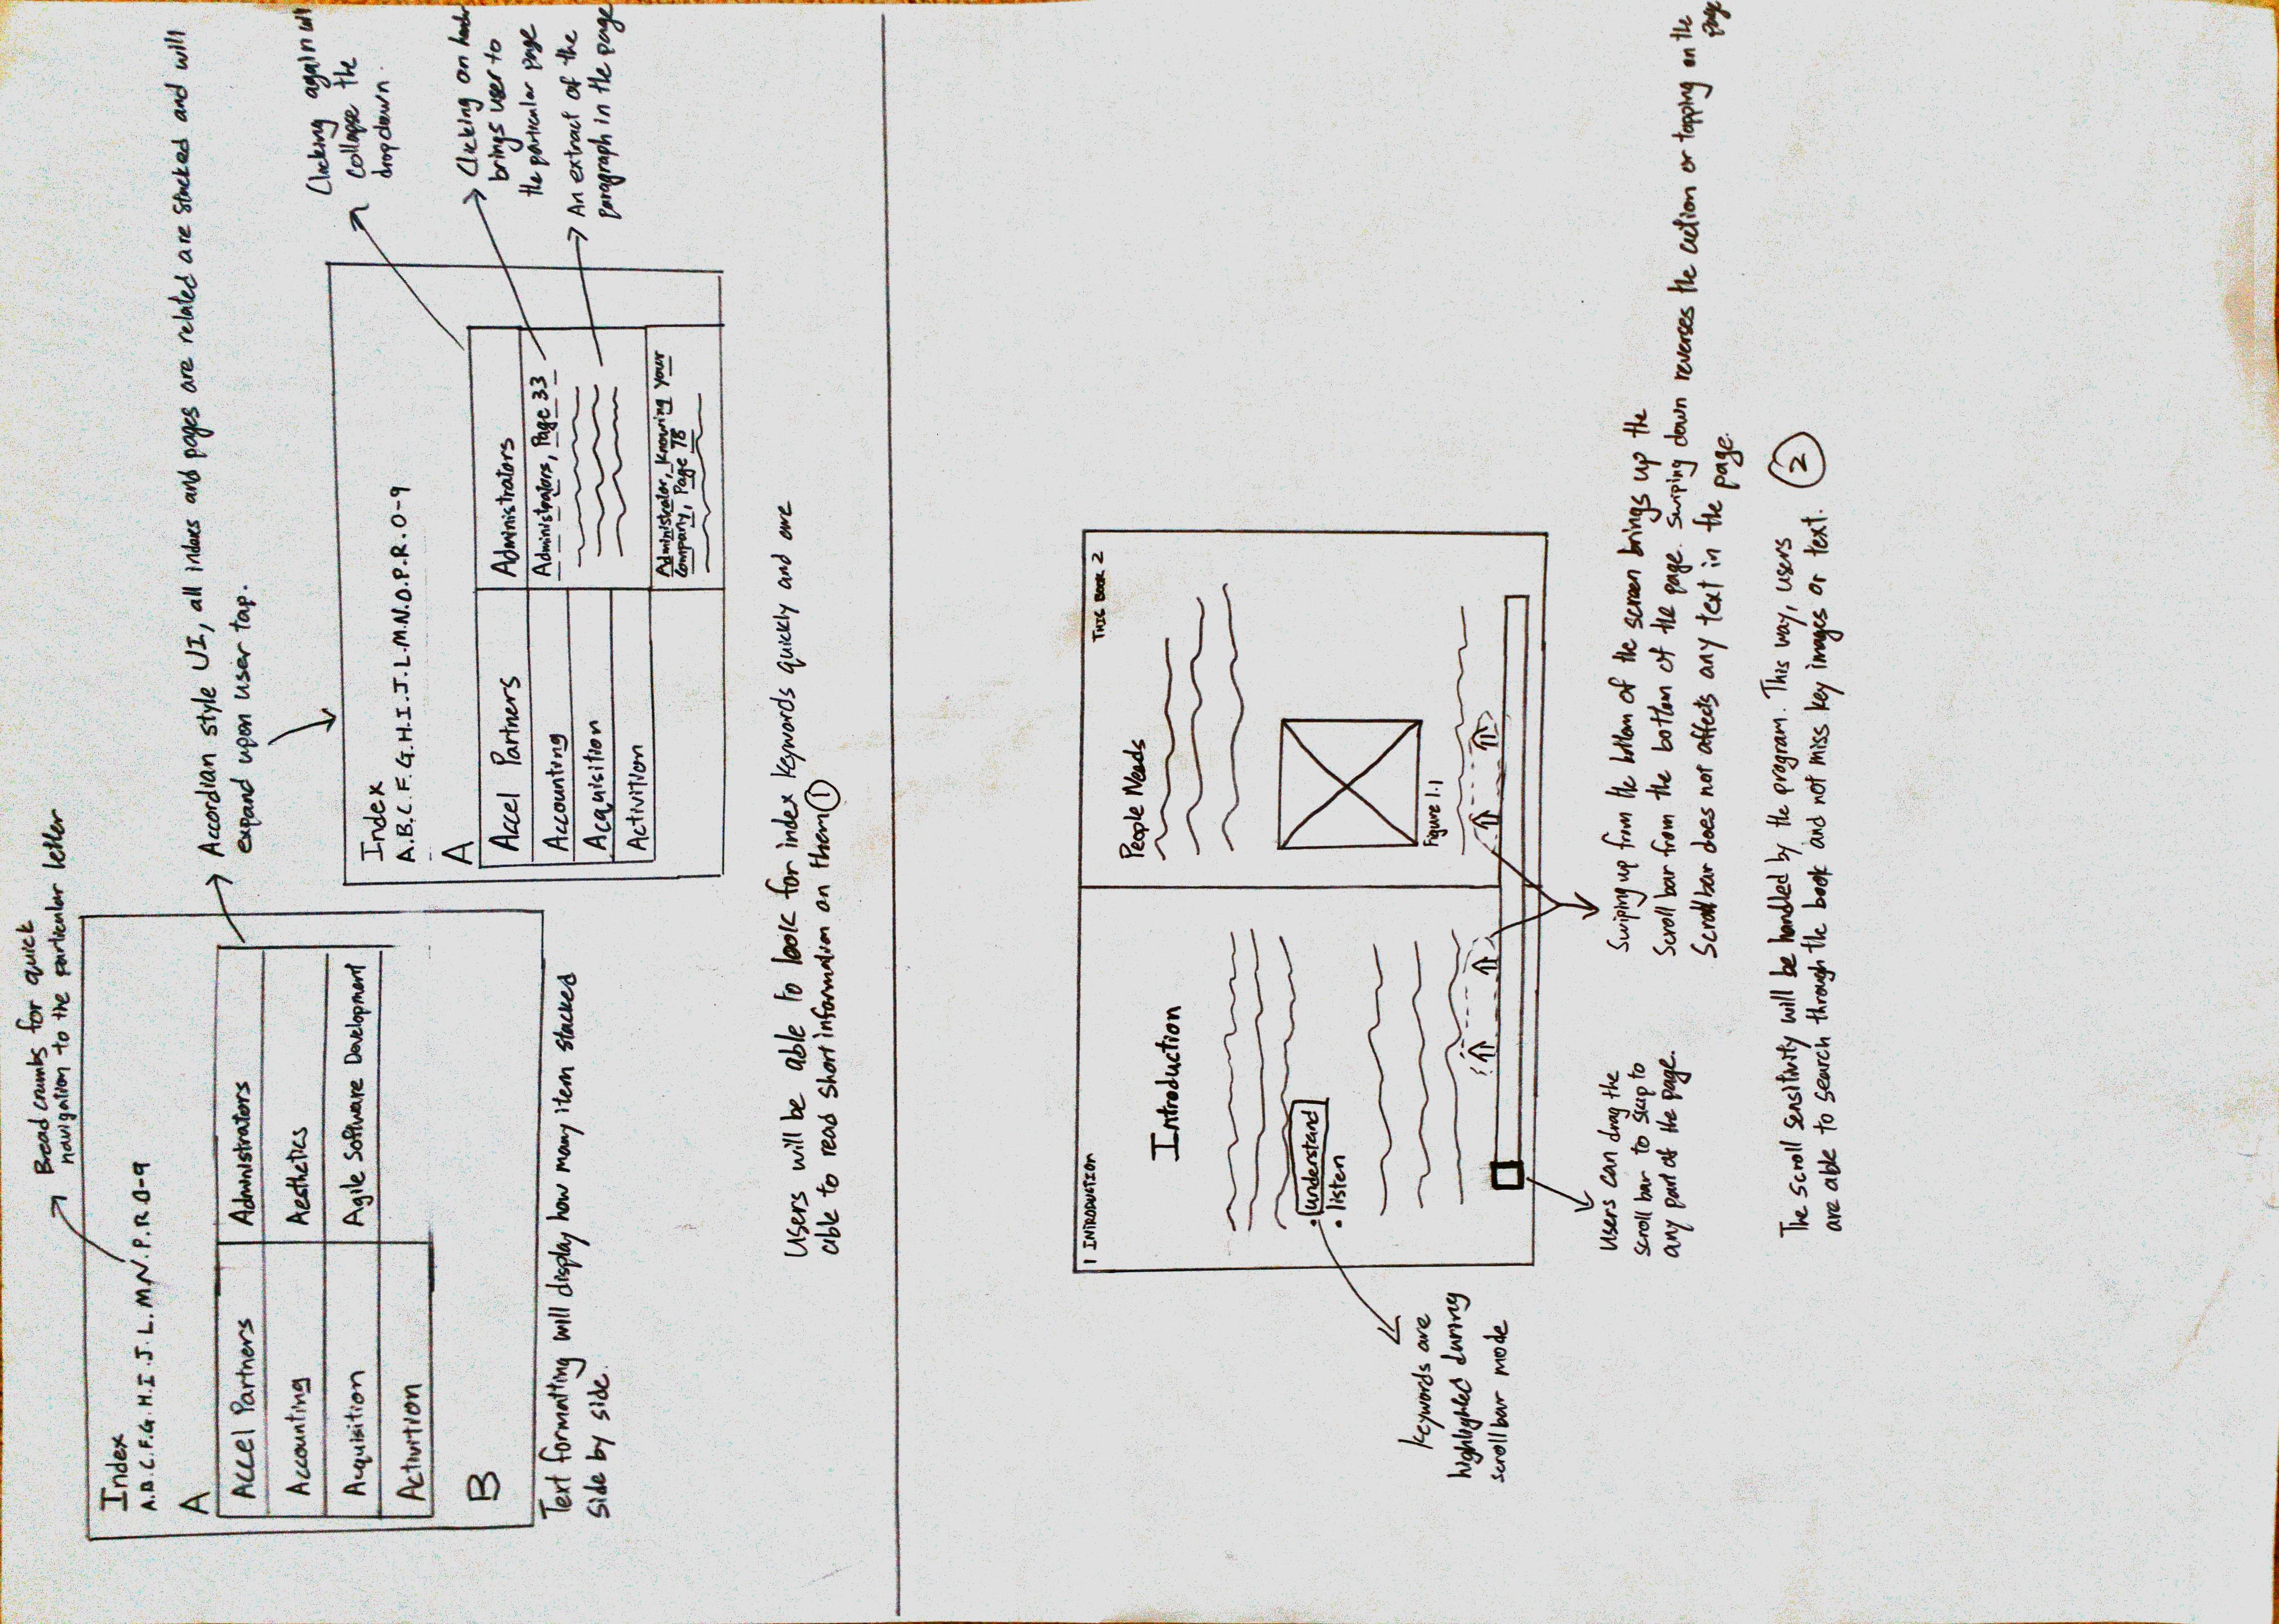 Bread crumbs for quick
navigation to the particular letter
Index
A.B.C.F.G.H.I.J.L.M.N.P.R 0-9
A
Accel Partners
Administrators
Accounting
Aesthetics
Acquisition
Agile Software Development
Activition
B
Text formatting will display how many item stacked
side by side.
Accordian style UI, all indexs and pages are related are stacked and will
expand upon user tap.
Index
A.B.C.F.G.H.I.J.L.M.N.O.P.R.0-9
A
Accel Partners
Administrators
Accounting
Administrators, Page 33
Acquisition
Activition
Administrator, Knowing Your
Company, Page 78
Clicking again will
collapse the
dropdown.
Clicking on
brings user to
the particular page
An extract of the
paragraph in the page
Users will be able to look for index keywords quickly and are
able to read short information on them ①
1 INTRODUCTION
THIS BOOK 2
Introduction
• understand
• listen
People Needs
Figure 1.1
Keywords are
highlighted during
scroll bar mode
Users can drag the
scroll bar to skip to
any part of the page.
Swiping up from the bottom of the screen brings up the
scroll bar from the bottom of the page. Swiping down reverses the action or tapping on the page
Scroll bar does not affects any text in the page.
The scroll sensitivity will be handled by the program. This way, users
are able to search through the book and not miss key images or text. ②